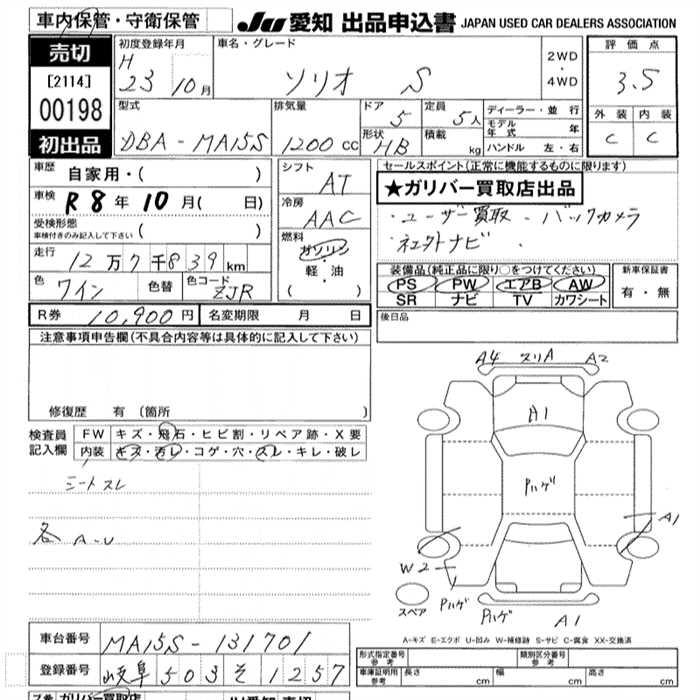 車内保管・守衛保管 JU 愛知 出品申込書 JAPAN USED CAR DEALERS ASSOCIATION
売切 初度登録年月 車名・グレード 評価点
H 23 10月 ソリオ S 2WD・4WD 3.5
[2114] 00198
型式 排気量 ドア 定員 ディーラー・並行 外装 内装
DBA-MA15S 1200cc 5 5人 モデル年式 年 C C
初出品 形状 HB 積載 kg ハンドル 左・右
車歴 自家用・( ) シフト AT セールスポイント(正常に機能するものに限ります)
★ガリバー買取店出品
車検 R8年10月( 日) 冷房 AAC
・ユーザー買取 ・バックカメラ
受検形態 車検付きのみ記入して下さい ( ) 燃料 ガソリン・軽・油 ( )
・社外ナビ ・
走行 12万7千839km
装備品(純正品に限り○をつけてください) 新車保証書
色 ワイン 色替 色コード ZJR
PS PW エアB AW 有・無
SR ナビ TV カワシート
R券 10,900円 名変期限 月 日 後日品
注意事項申告欄(不具合内容等は具体的に記入して下さい)
A4 スリA A2
修復歴 有 (箇所 )
A1
検査員記入欄 FW キズ・飛石・ヒビ割・リペア跡・X要
内装 キズ・汚レ・コゲ・穴・スレ・キレ・破レ
シートスレ
Pハゲ
各 A-U
A1
W2
スペア Pハゲ Pハゲ A1
A-キズ E-エクボ U-凹み W-補修跡 S-サビ C-腐食 XX-交換済
車台番号 MA15S-131701
形式指定番号 参考 類別区分番号 参考
登録番号 岐阜 503 そ 1257
車庫証明用 参考 長さ cm 幅 cm 高さ cm
ガリバー買取店 JU愛知 売切